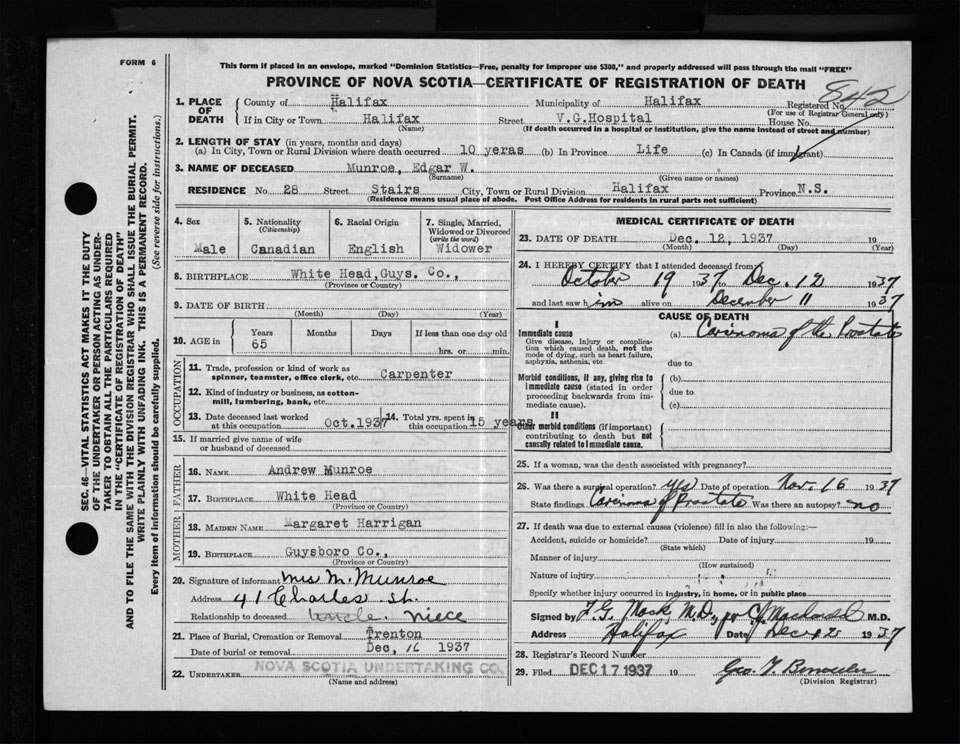 FORM 6
This form if placed in an envelope, marked "Dominion Statistics—Free, penalty for improper use $300," and properly addressed will pass through the mail "FREE"
PROVINCE OF NOVA SCOTIA—CERTIFICATE OF REGISTRATION OF DEATH
842
1. PLACE OF DEATH County of Halifax Municipality of Halifax Registered No.
(For use of Registrar General only)
If in City or Town Halifax Street V.G.Hospital House No.
(Name) (If death occurred in a hospital or institution, give the name instead of street and number)
2. LENGTH OF STAY (in years, months and days)
(a) In City, Town or Rural Division where death occurred 10 yeras (b) In Province Life (c) In Canada (if immigrant)
3. NAME OF DECEASED Munroe, Edgar W.
(Surname) (Given name or names)
RESIDENCE No. 28 Street Stairs City, Town or Rural Division Halifax Province N.S.
(Residence means usual place of abode. Post Office Address for residents in rural parts not sufficient)
4. Sex Male
5. Nationality (Citizenship) Canadian
6. Racial Origin English
7. Single, Married, Widowed or Divorced (write the word) Widower
8. BIRTHPLACE White Head,Guys. Co.,
(Province or Country)
9. DATE OF BIRTH
(Month) (Day) (Year)
10. AGE in Years 65 Months Days If less than one day old
hrs. or min.
OCCUPATION
11. Trade, profession or kind of work as spinner, teamster, office clerk, etc. Carpenter
12. Kind of industry or business, as cotton-mill, lumbering, bank, etc.
13. Date deceased last worked at this occupation Oct.1937
14. Total yrs. spent in this occupation 15 years
15. If married give name of wife or husband of deceased
FATHER
16. NAME Andrew Munroe
17. BIRTHPLACE White Head
(Province or Country)
MOTHER
18. MAIDEN NAME Margaret Harrigan
19. BIRTHPLACE Guysboro Co.,
(Province or Country)
20. Signature of informant Mrs M. Munroe
Address 41 Charles St.
Relationship to deceased uncle. niece
21. Place of Burial, Cremation or Removal Trenton
Date of burial or removal Dec, 16 1937
22. UNDERTAKER NOVA SCOTIA UNDERTAKING CO.
(Name and address)
MEDICAL CERTIFICATE OF DEATH
23. DATE OF DEATH Dec. 12, 1937 19
(Month) (Day) (Year)
24. I HEREBY CERTIFY that I attended deceased from
October 19 1937 to Dec. 12 1937
and last saw him alive on December 11 1937
CAUSE OF DEATH
I
Immediate cause (a) Carcinoma of the Prostate
Give disease, injury or complication which caused death, not the mode of dying, such as heart failure, asphyxia, asthenia, etc.
due to
Morbid conditions, if any, giving rise to immediate cause (stated in order proceeding backwards from immediate cause).
(b)
due to
(c)
II
Other morbid conditions (if important) contributing to death but not causally related to immediate cause.
25. If a woman, was the death associated with pregnancy?
26. Was there a surgical operation? yes Date of operation Nov. 16 1937
State findings Carcinoma of Prostate Was there an autopsy? no
27. If death was due to external causes (violence) fill in also the following:—
Accident, suicide or homicide? Date of injury 19
(State which)
Manner of injury
(How sustained)
Nature of injury
Specify whether injury occurred in industry, in home, or in public place
Signed by F.G. Mack, M.D., M.D.
Address Halifax Date Dec 12 1937
28. Registrar's Record Number
29. Filed DEC 17 1937 19
(Division Registrar)
SEC. 46—VITAL STATISTICS ACT MAKES IT THE DUTY
OF THE UNDERTAKER OR PERSON ACTING AS UNDER-
TAKER TO OBTAIN ALL THE PARTICULARS REQUIRED
IN THE "CERTIFICATE OF REGISTRATION OF DEATH"
AND TO FILE THE SAME WITH THE DIVISION REGISTRAR WHO SHALL ISSUE THE BURIAL PERMIT.
WRITE PLAINLY WITH UNFADING INK. THIS IS A PERMANENT RECORD.
Every item of Information should be carefully supplied. (See reverse side for instructions.)